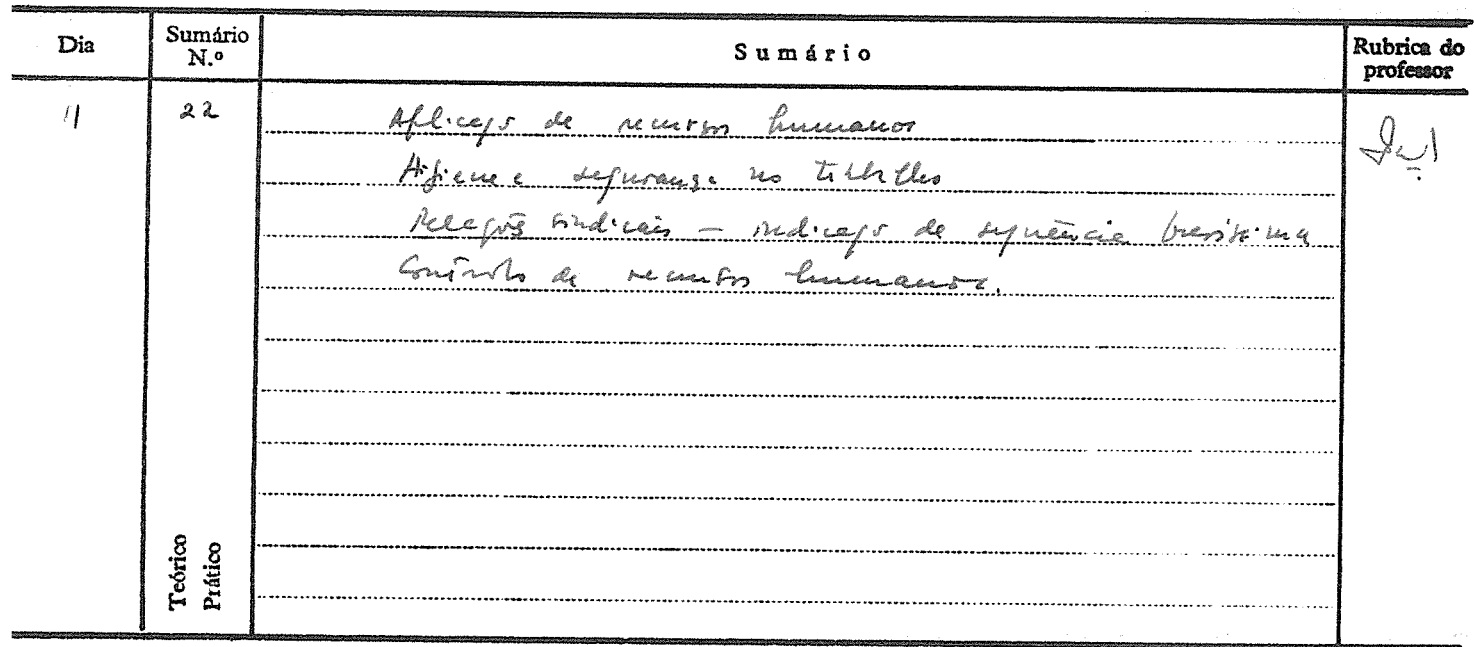 Dia
Sumário N.º
Sumário
Rubrica do professor
11
22
Aplicação de recursos humanos
Higiene e segurança no trabalho
Relações sindicais — indicação de sequência brevíssima
Contrôlo de recursos humanos.
Teórico
Prático